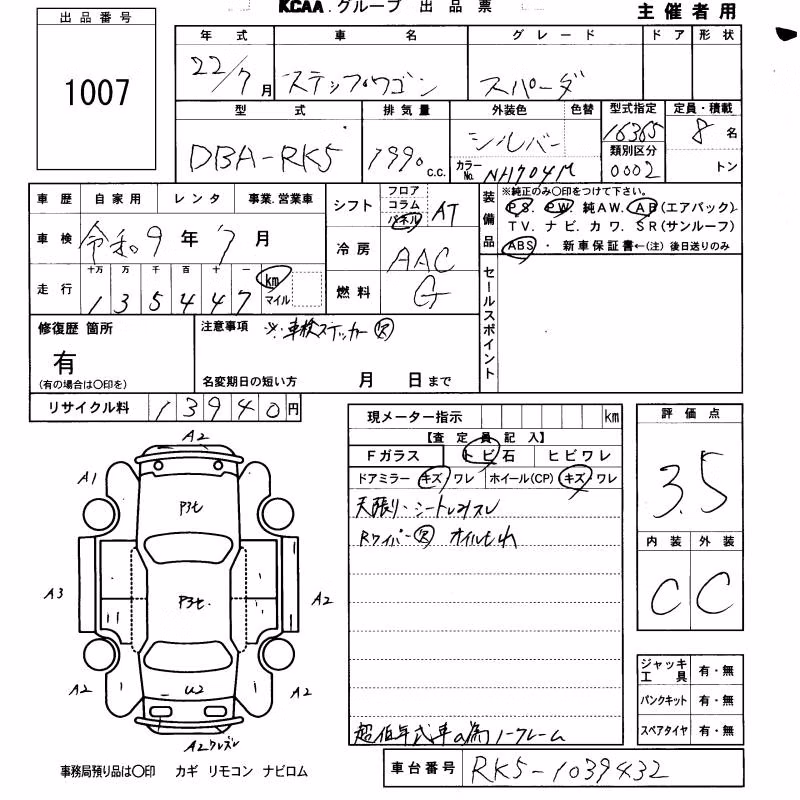 KCAA.グループ 出品票
主催者用
出品番号
1007
年式 車名 グレード ドア 形状
22/7月 ステップワゴン スパーダ
型式 排気量 外装色 色替 型式指定 定員・積載
DBA-RK5 1990 c.c. シルバー カラーNo. NH704M 16365 8名
類別区分
0002 トン
車歴 自家用 レンタ 事業.営業車
車検 令和9年7月
走行 十万 万 千 百 十 一
135447 km マイル
シフト フロア コラム パネル AT
冷房 AAC
燃料 G
装備品 ※純正のみ〇印をつけて下さい。
PS. PW. 純AW. AB(エアバック)
TV. ナビ. カワ. SR(サンルーフ)
ABS ・ 新車保証書←(注) 後日送りのみ
セールスポイント
修復歴 箇所
有
(有の場合は〇印を)
注意事項 ※車検ステッカー欠
名変期日の短い方 月 日まで
リサイクル料 13940円
現メーター指示 km
【査定員記入】
Fガラス トビ石 ヒビワレ
ドアミラー キズ ワレ ホイール(CP) キズ・ワレ
天張り・シートしみスレ
Rワイパー欠 オイルもれ
超低年式車の為ノークレーム
評価点
3.5
内装 外装
C C
A2
A1
P3t
A3
P3t.
A2
A2
U2
A2
A2ワレズレ
ジャッキ工具 有・無
パンクキット 有・無
スペアタイヤ 有・無
事務局預り品は〇印 カギ リモコン ナビロム
車台番号 RK5-1039432